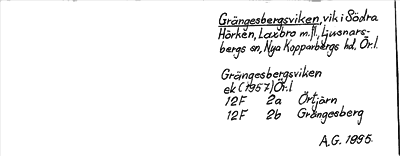 Grängesbergsviken, vik i Södra
Hörken, Laxbro m.fl., Ljusnars-
bergs sn, Nya Kopparbergs hd, Ör.l.
Grängesbergsviken
ek (1957) Ör.l
12F 2a Örtjärn
12F 2b Grängesberg
A.G. 1995.